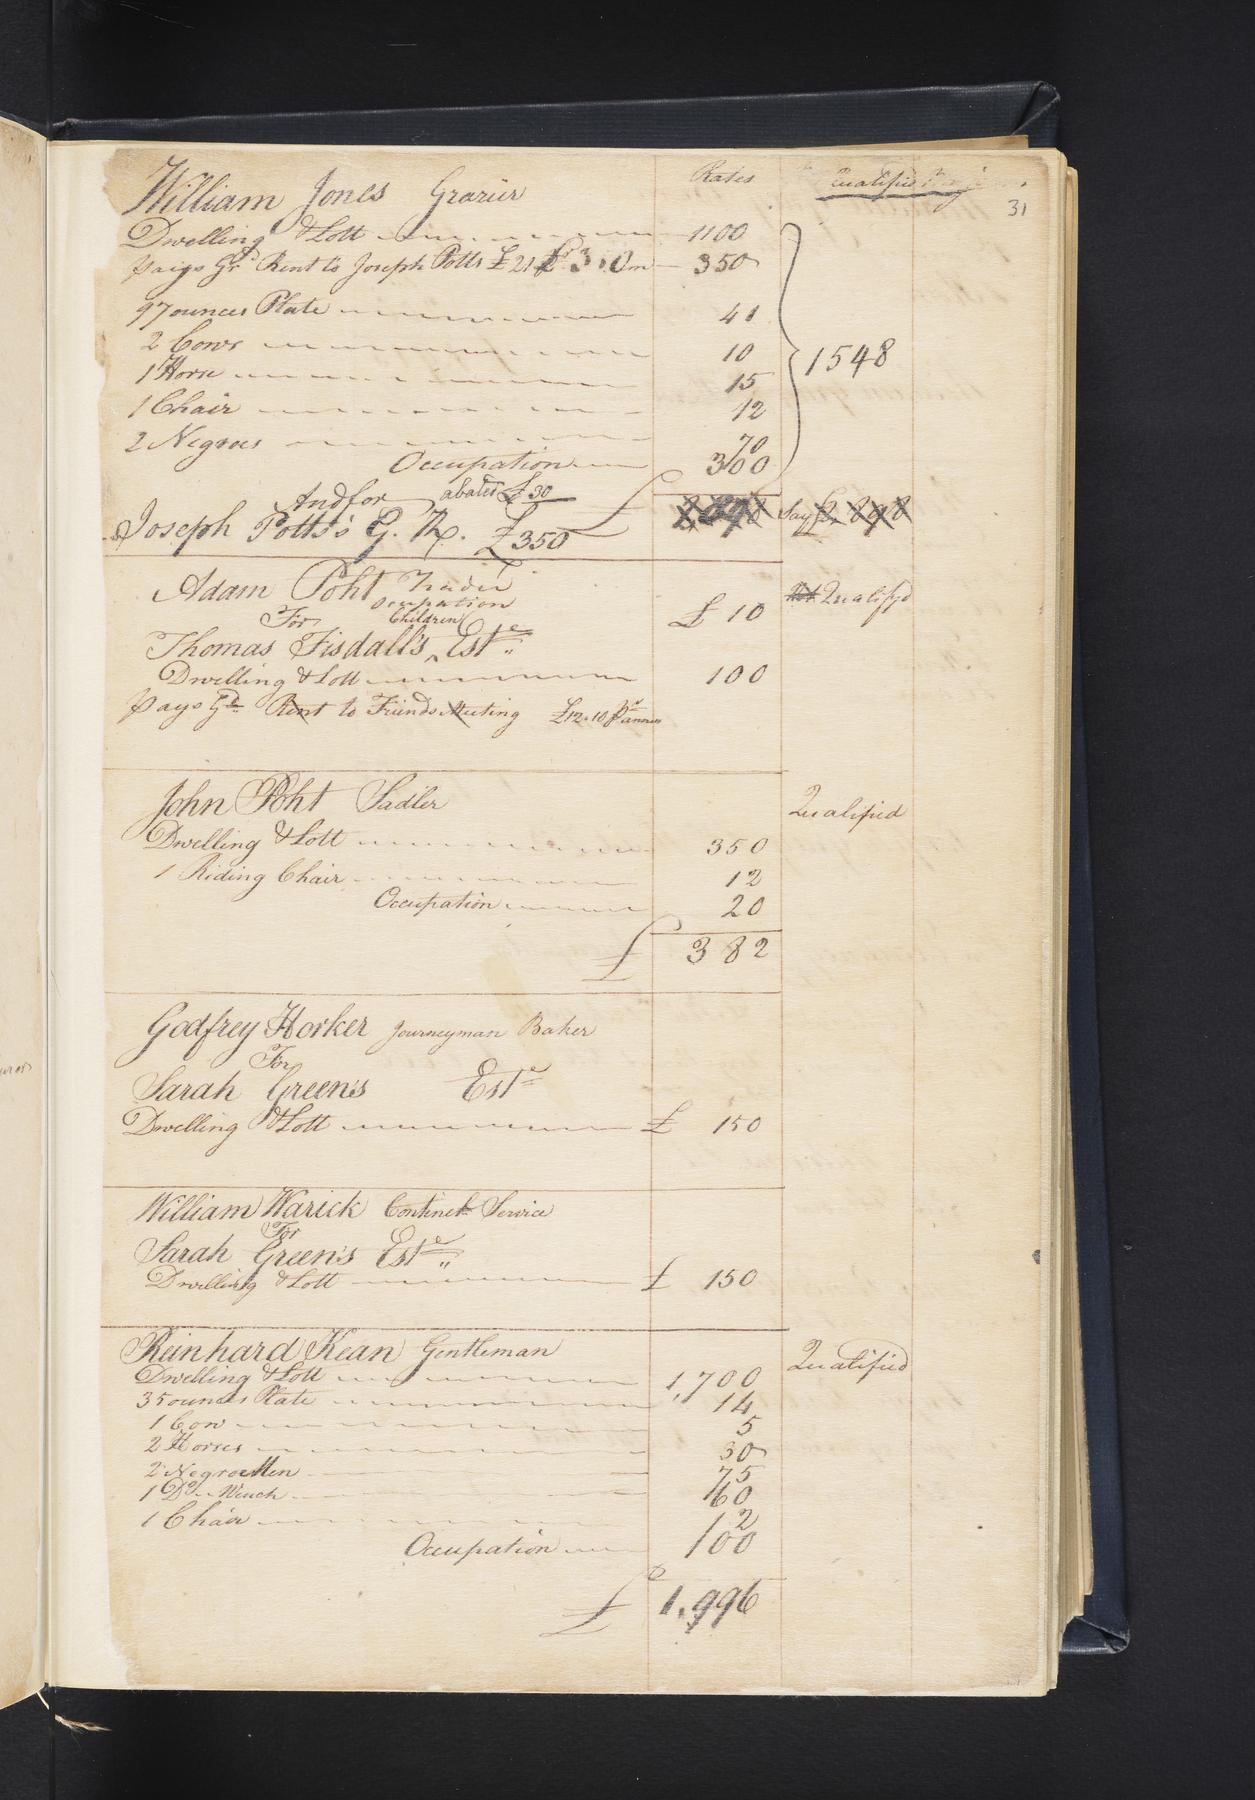 Rates
31
William Jones Grazier
Dwelling & Lott 1100
pays Gr.d Rent to Joseph Potts £21 350
97 ounces Plate 41
2 Cows 10
1 Horse 15
1548
1 Chair 12
2 Negroes 70
Occupation 300
And for abated £30
Joseph Potts's G. R. £350 £
Adam Poht Trader
Occupation £ 10 Not Qualifyd
For Children
Thomas Tisdall's Est.e
Dwelling & Lott 100
pays G.d Rent to Friends Meeting £12.10 P annum
John Poht Sadler Qualified
Dwelling & Lott 350
1 Riding Chair 12
Occupation 20
£ 382
Godfrey Horker Journeyman Baker
For
Sarah Green's Est.e
Dwelling & Lott £ 150
William Warick Continel Service
For
Sarah Green's Est.e
Dwelling & Lott £ 150
Reinhard Kean Gentleman Qualified
Dwelling & Lott 1,700
35 ounces Plate 14
1 Cow 5
2 Horses 30
2 Negroe Men 75
1 D.o Wench 60
1 Chair 12
Occupation 100
£ 1,996